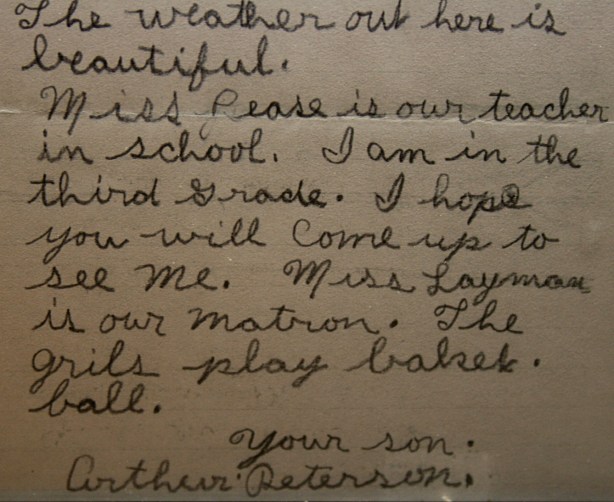 The weather out here is
beautiful.
Miss Rease is our teacher
in school. I am in the
third Grade. I hope
you will Come up to
see Me. Miss Layman
is our Matron. The
grils play baket.
ball.
Your son.
Arthur Peterson.